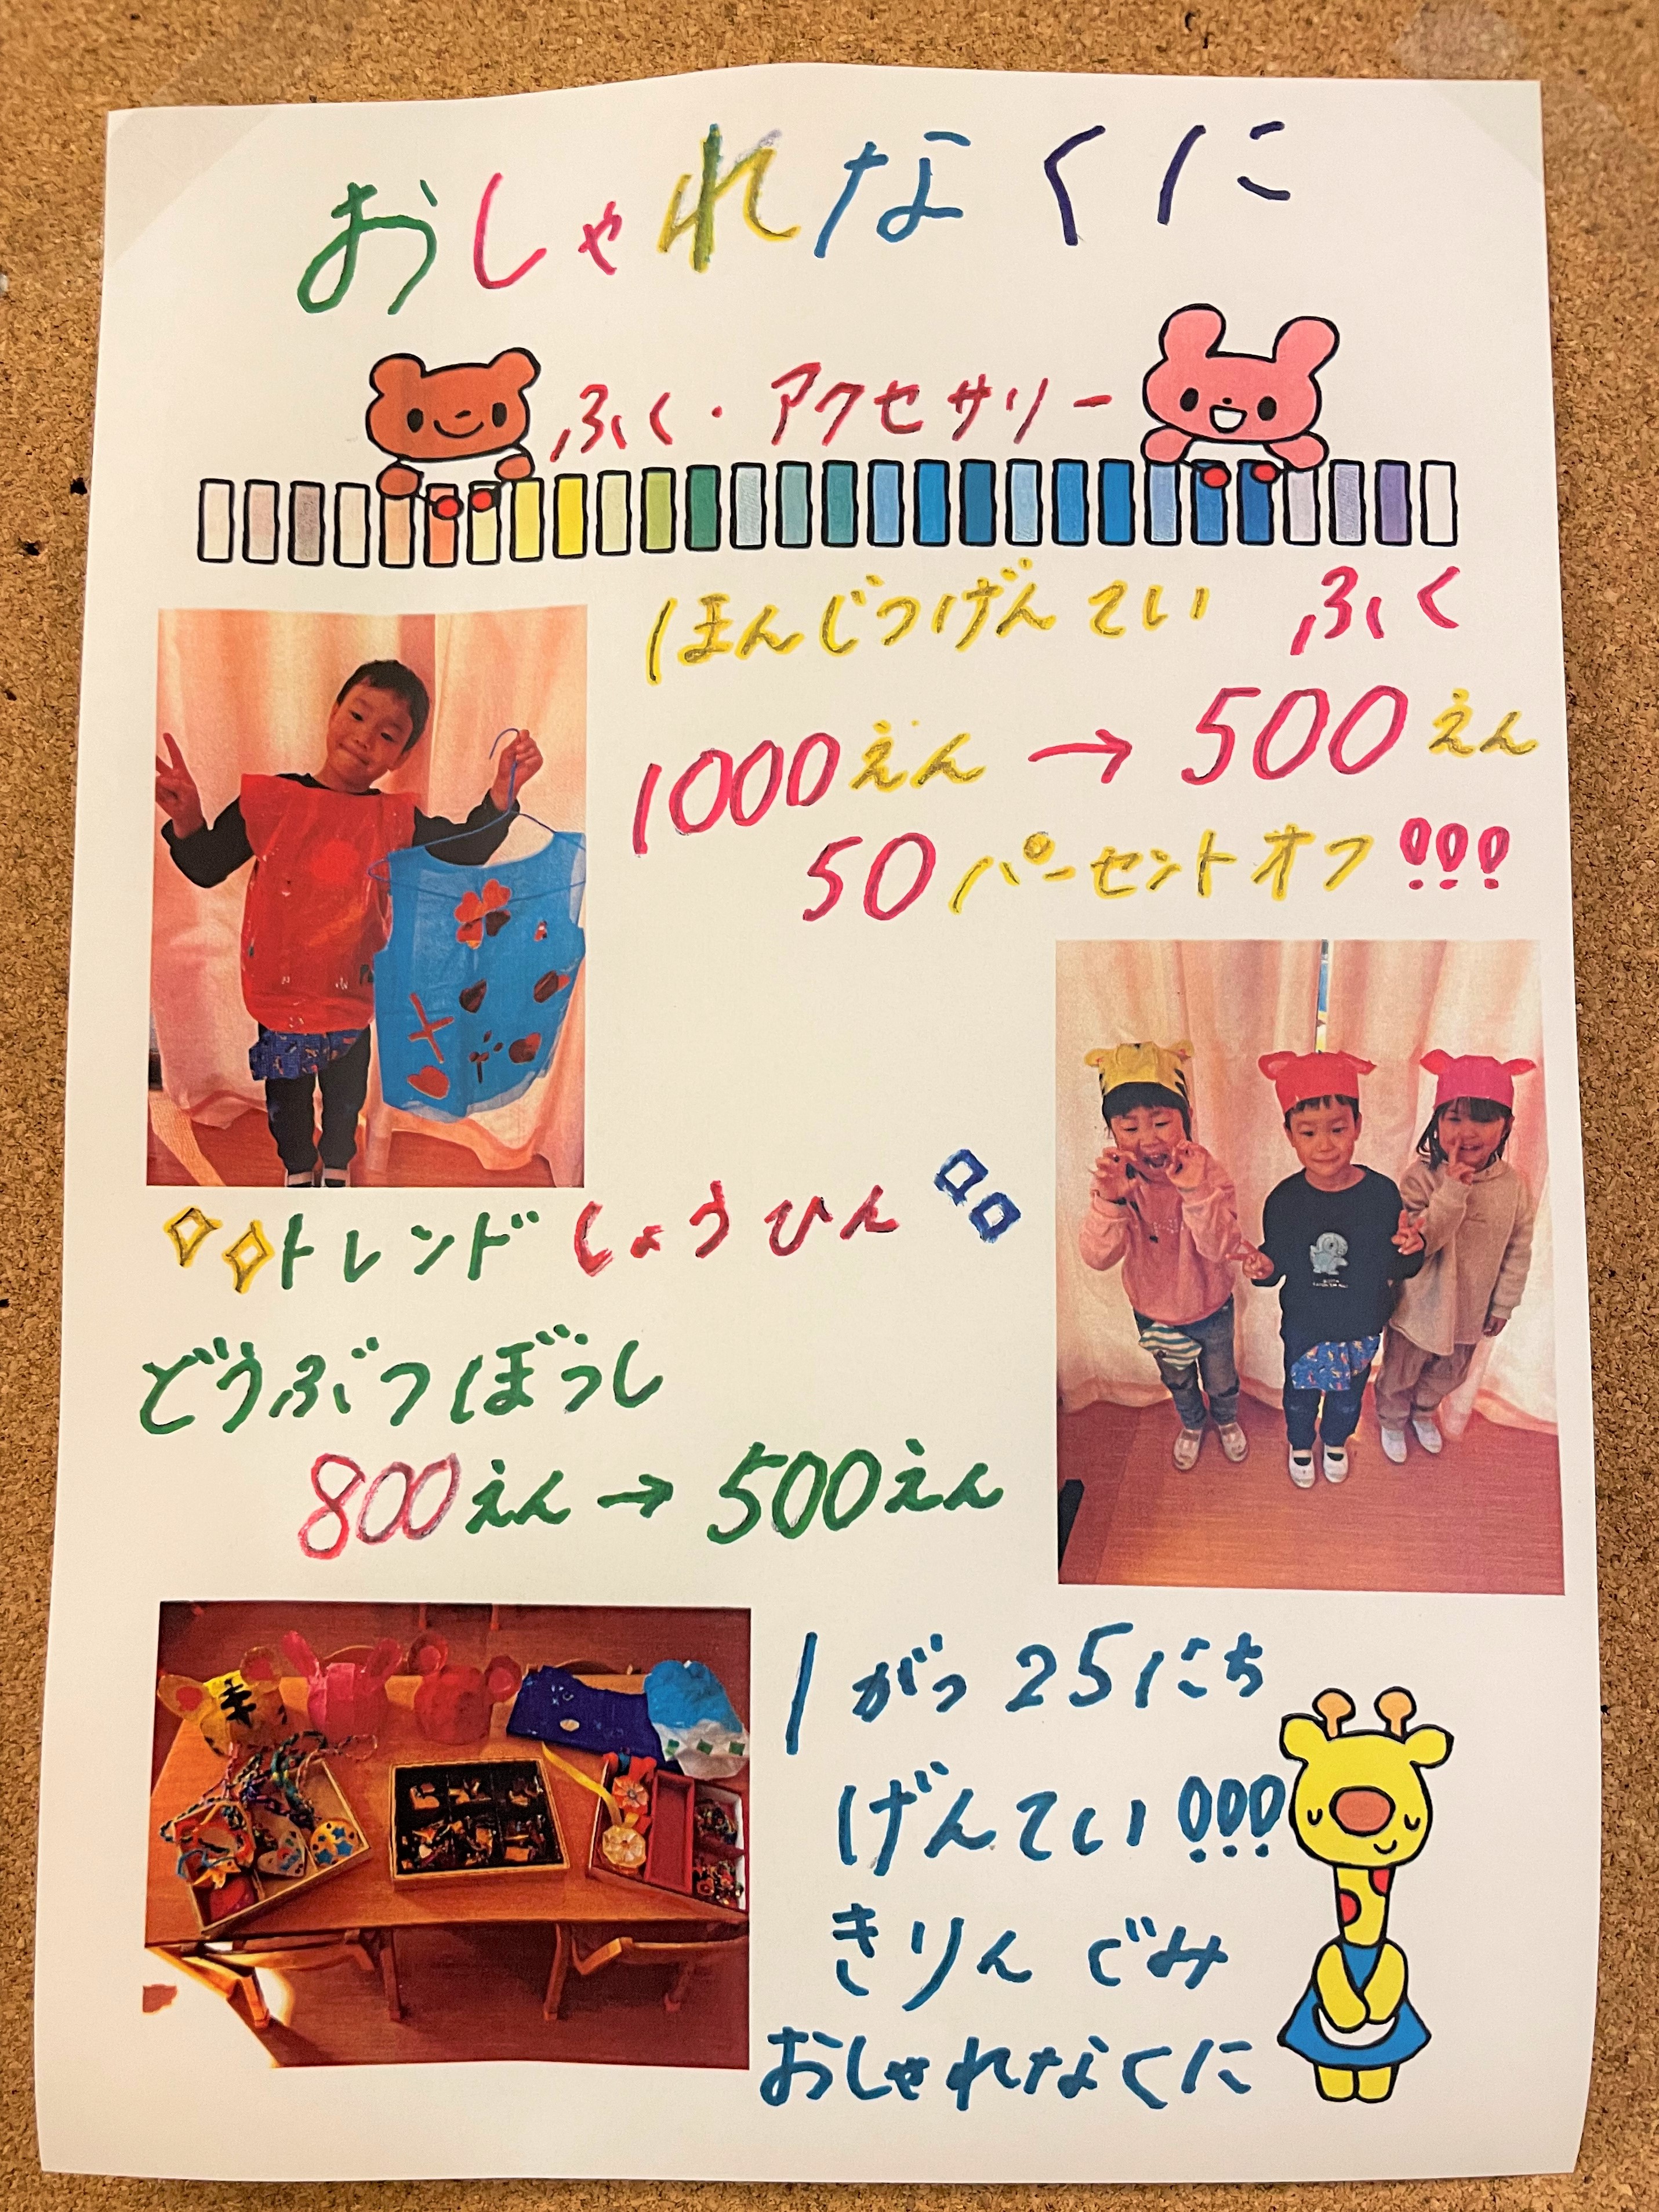 おしゃれなくに
ふく・アクセサリー
ほんじつげんてい ふく
1000えん→500えん
50パーセントオフ!!!
トレンドしょうひん
どうぶつぼうし
800えん→500えん
1がつ25にち
げんてい!!!
きりんぐみ
おしゃれなくに